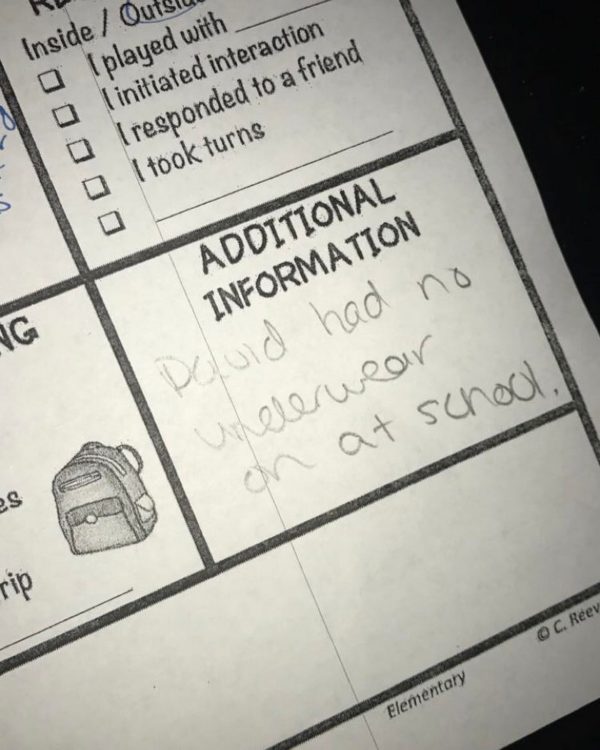 Inside / Outside
I played with
I initiated interaction
I responded to a friend
I took turns
ADDITIONAL
INFORMATION
David had no
underwear
on at school.
NG
es
rip
Elementary
© C. Reev